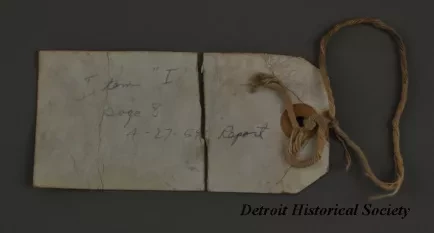 Item "I"
Page 8
4-27- Report
Detroit Historical Society